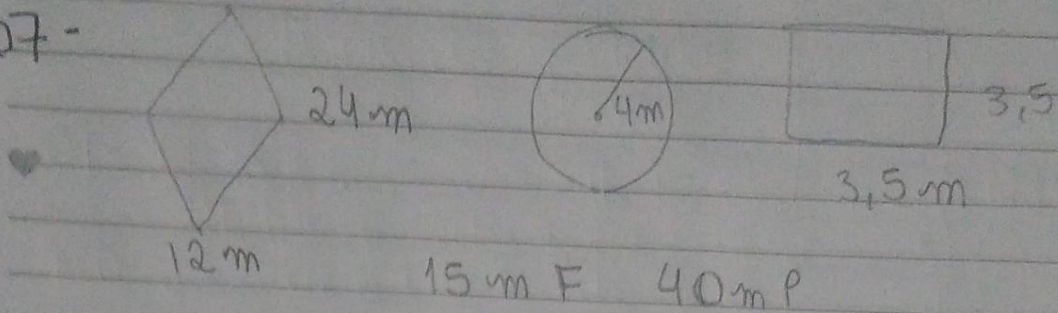 07-
24m
4m
3,5
3,5m
12m
15m F 40m P